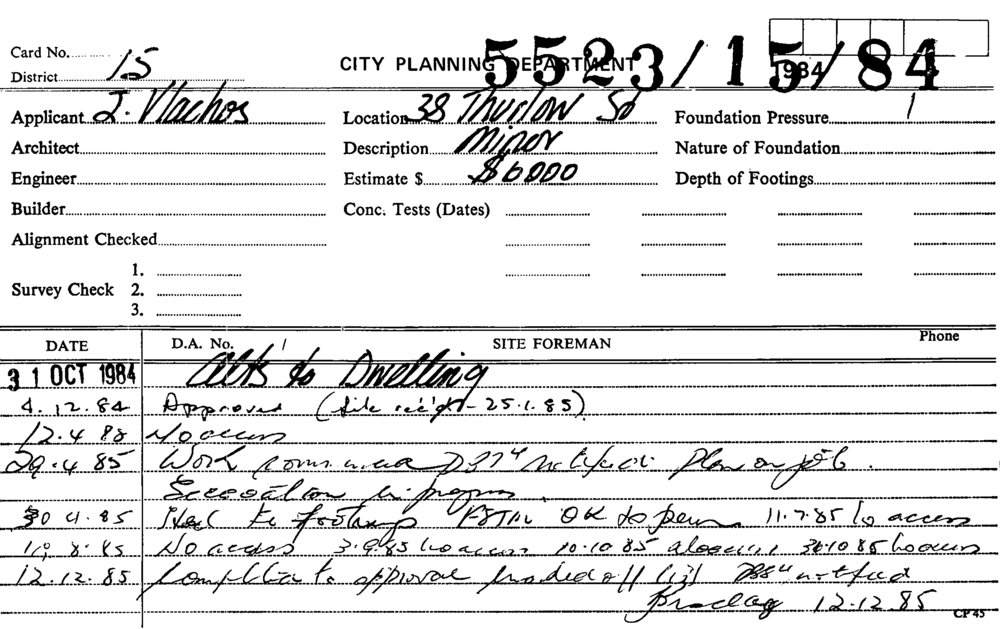 Card No. 15
5523/15/84
CITY PLANNING DEPARTMENT
1984
District
Applicant J. Vlachos
Location 38 Thurlow St
Foundation Pressure
Architect
Description Minor
Nature of Foundation
Engineer
Estimate $ $6000
Depth of Footings
Builder
Conc. Tests (Dates)
Alignment Checked
1.
Survey Check 2.
3.
DATE D.A. No. / SITE FOREMAN Phone
31 OCT 1984 Alts to Dwelling
4.12.84 Approved (file rec'd - 25.1.85)
12.4 No access
29.4.85 Work Plan on job.
in progress.
30 85 Steel to footings OK to pour 11.7.85 No access
8.85 No access 3.9.85 No access 10.10 85 30.10 85 No access
12.12.85 approval off notified
12.12.85
CP 45